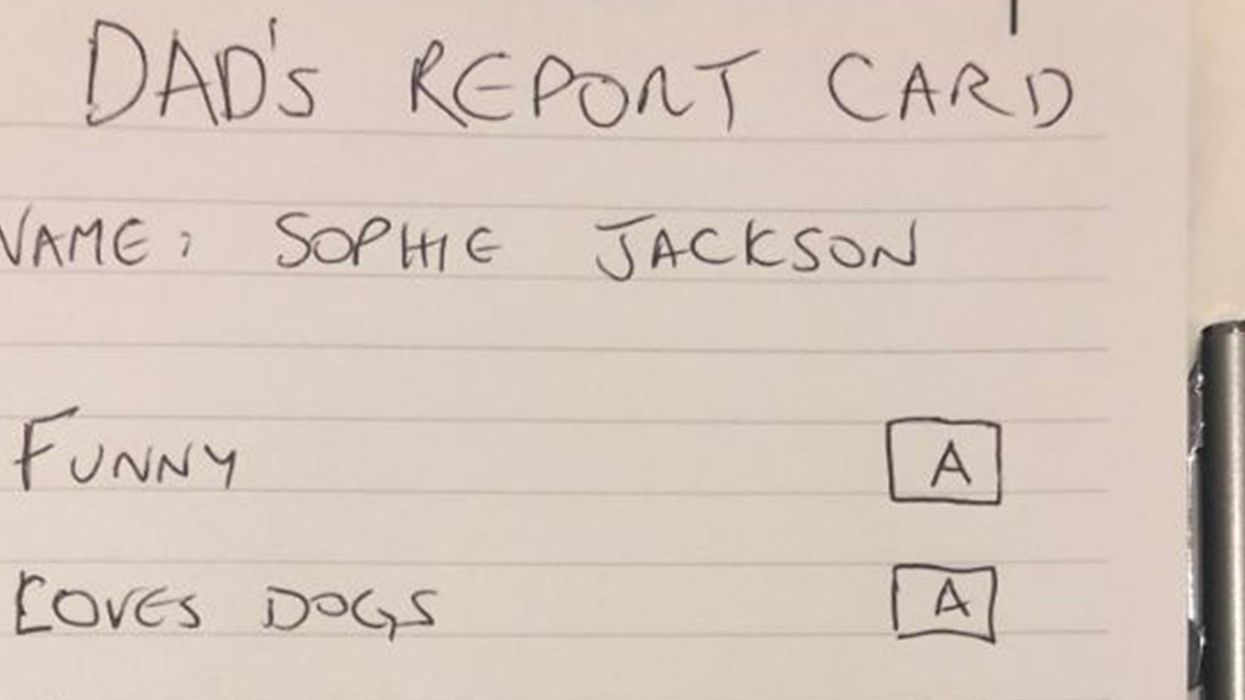 DAD'S REPORT CARD
NAME: SOPHIE JACKSON
FUNNY A
LOVES DOGS A